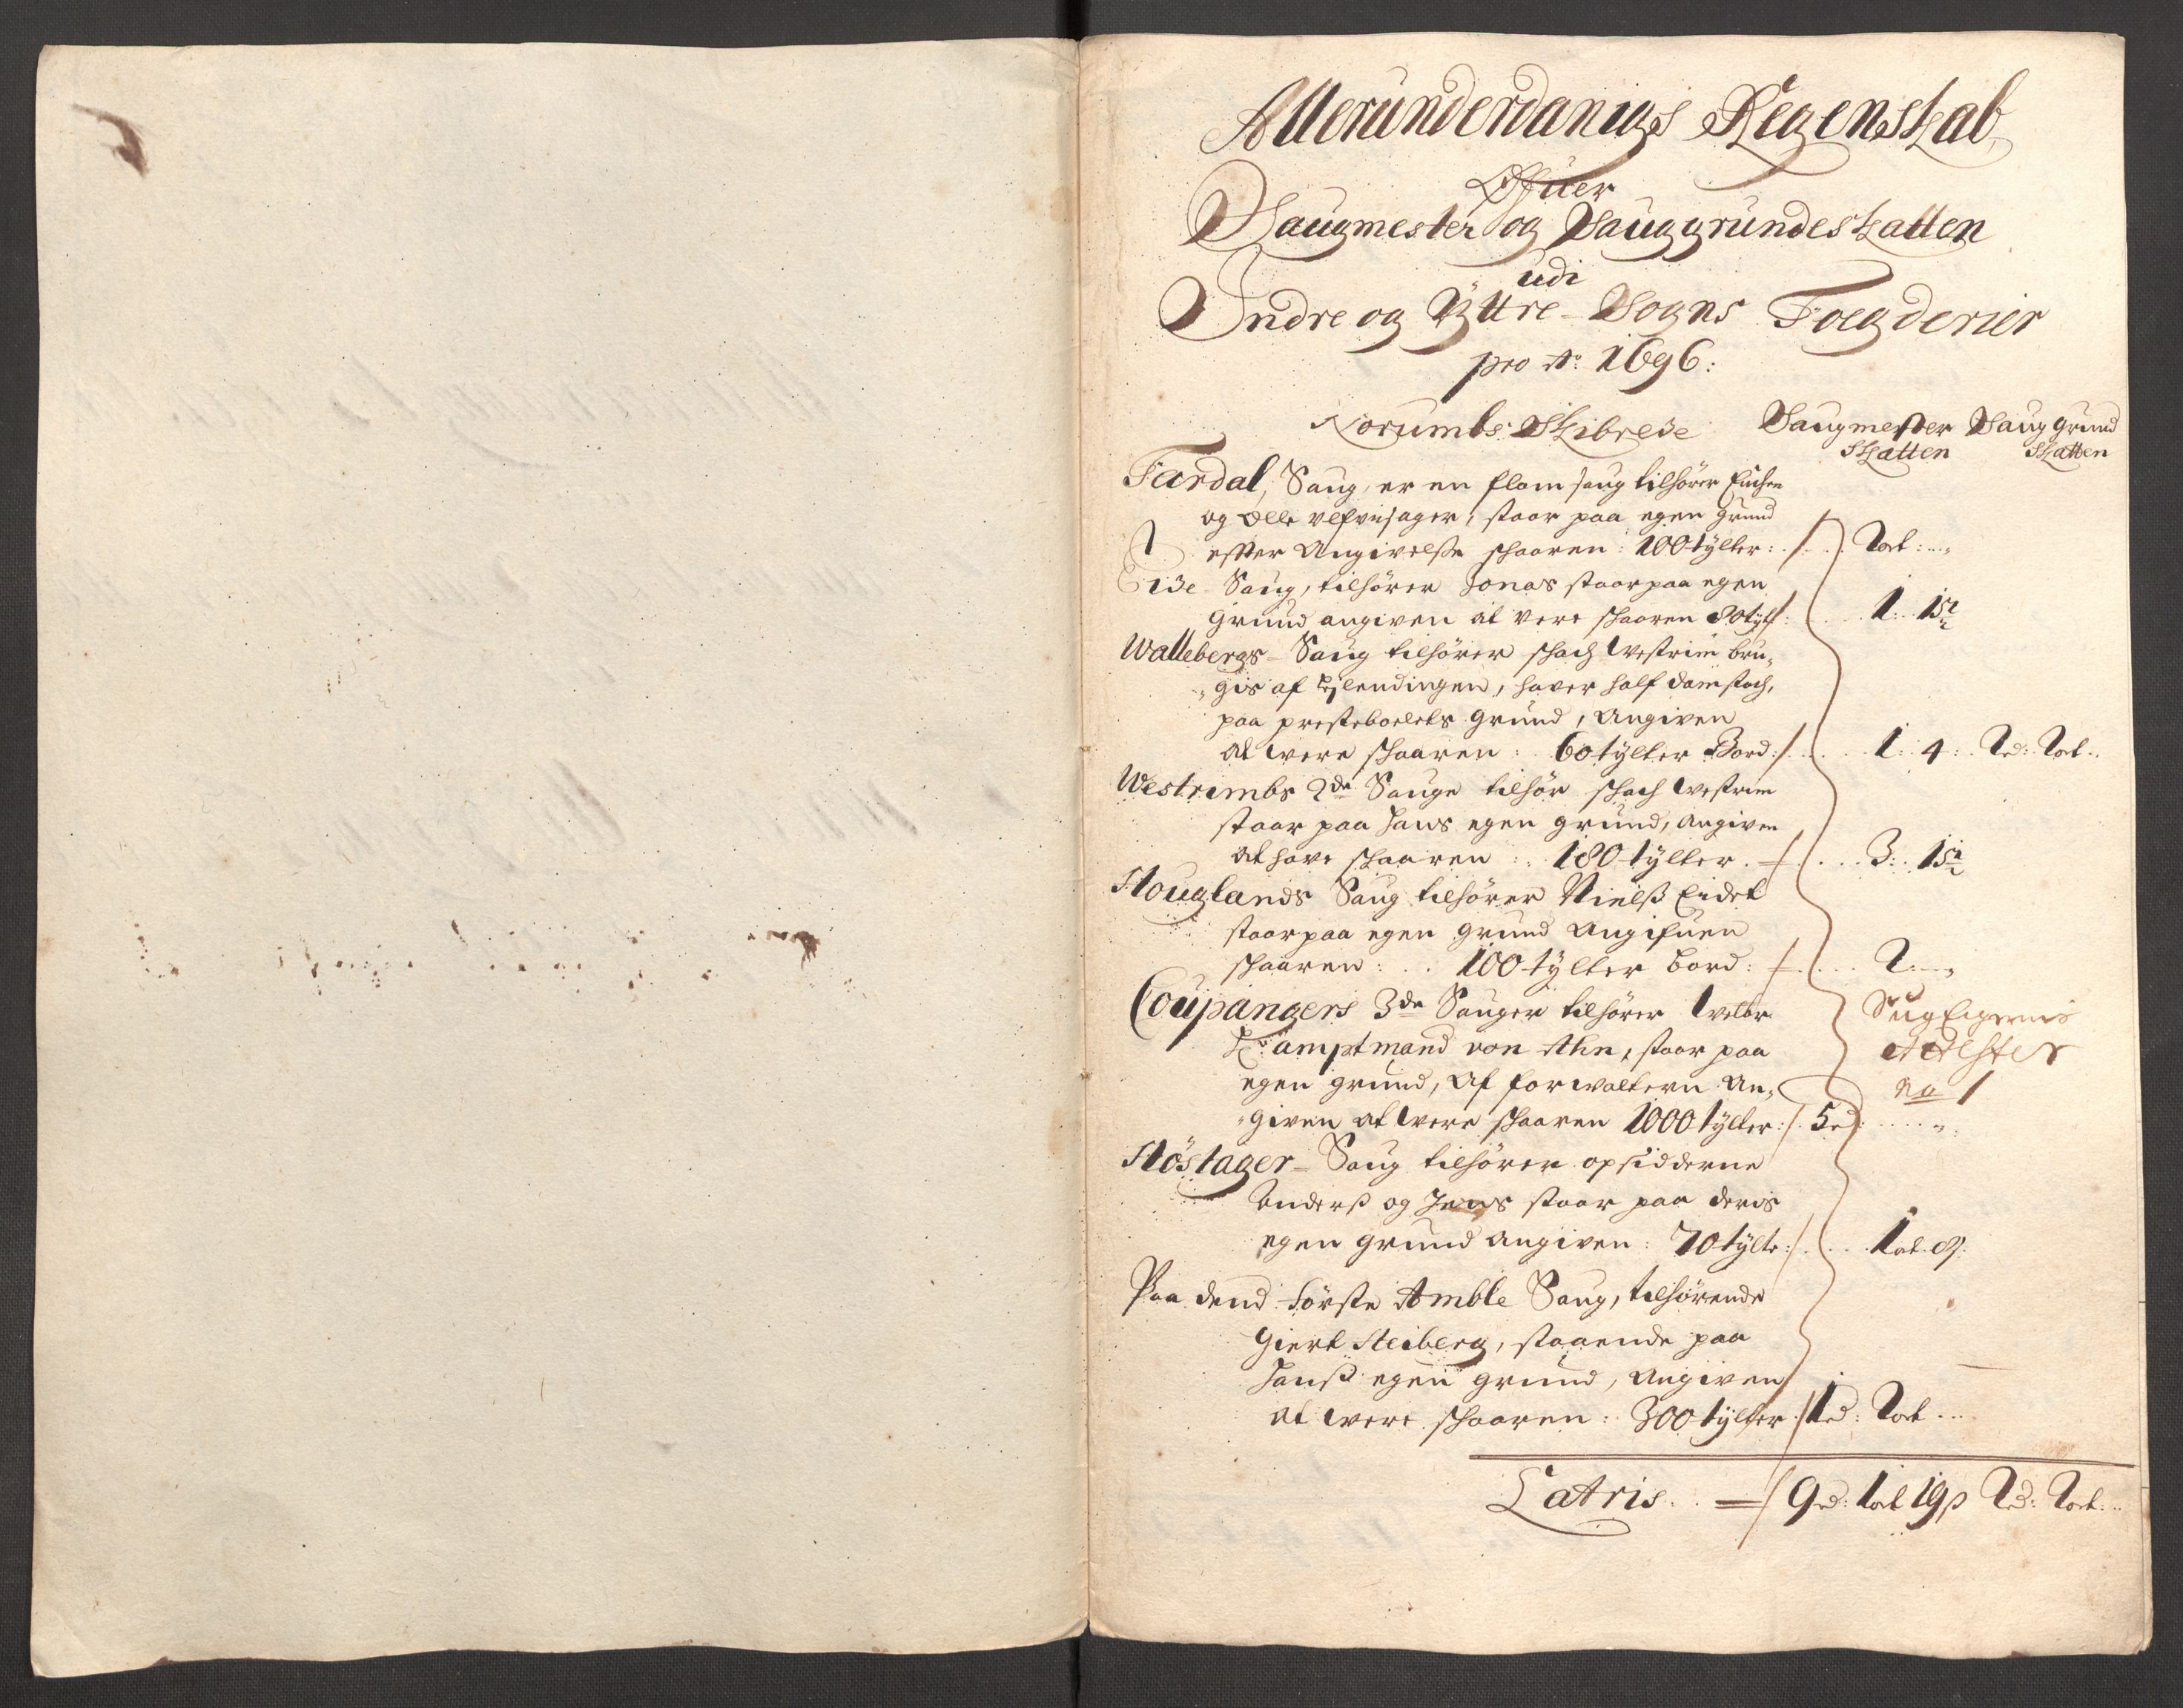 Allerunderdanigs Regenskab
Offuer
Saugmester og Sauggrundeskatten
udi
Indre og Yttre Sogns Foegderier
pro Ao: 1696:
Norumbs Skibrede Saugmester Saug grund
Skatten Skatten
Fardal, Saug, er en flom saug tilhører
og Olle staar paa egen grund
effter Angivelse skaaren: 100 tylter: 2 ort:
Eide Saug, tilhører Jonas staar paa egen
grund angiven at vere skaaren 80 tylt: 1: 15
Wallebergs Saug tilhører Schach Westrim bru-
gis af haver half damstoch,
paa presteboelets grund, Angiven
at were skaaren: 60 tylter Bord: 1: 4: 2 rd: 2 ort
Westrimbs 2de Sauge tilhør Schach Westrim
staar paa hans egen grund, angiven
at have skaaren: 180 tylter 3: 15
Houglands Saug tilhører Nielß Eidet
staar paa egen grund Angifuen
skaaren: 100 tylter bord: 2
Coupangers 3de Sauger tilhører Welbr
Hr: amptmand von Ahn, staar paa
egen grund, Af forwaltern An-
given at were skaaren 1000 tylter: 5 rd:
Attester
No 1
Støstager Saug tilhører opsidderne
Anderß og Jens staar paa deris
egen grund angiven: 70 tylt: 1 ort 9
Paa dend første Amble Saug, tilhørende
Giert Heiberg, staaende paa
hanß egen grund, Angiven
at were skaaren: 300 tylter 1 rd: 2 ort
Latris 9 rd: 1 ort 19 ß 2 rd: 2 ort